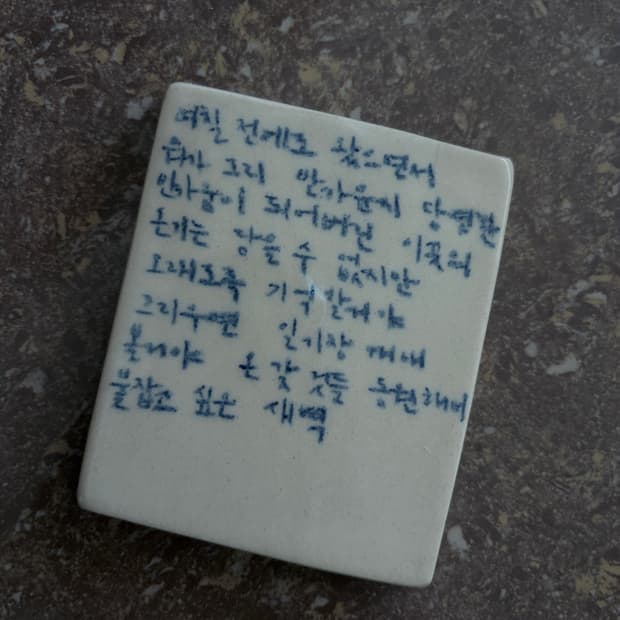 며칠 전에도 왔으면서
뭐가 그리 반가운지 당연한
반가움이 되어버린 이곳의
온기는 담을 수 없지만
오래도록 기억할게야
그리우면 일기장 꺼내
볼게야 온갖 것들 동원해서
붙잡고 싶은 새벽